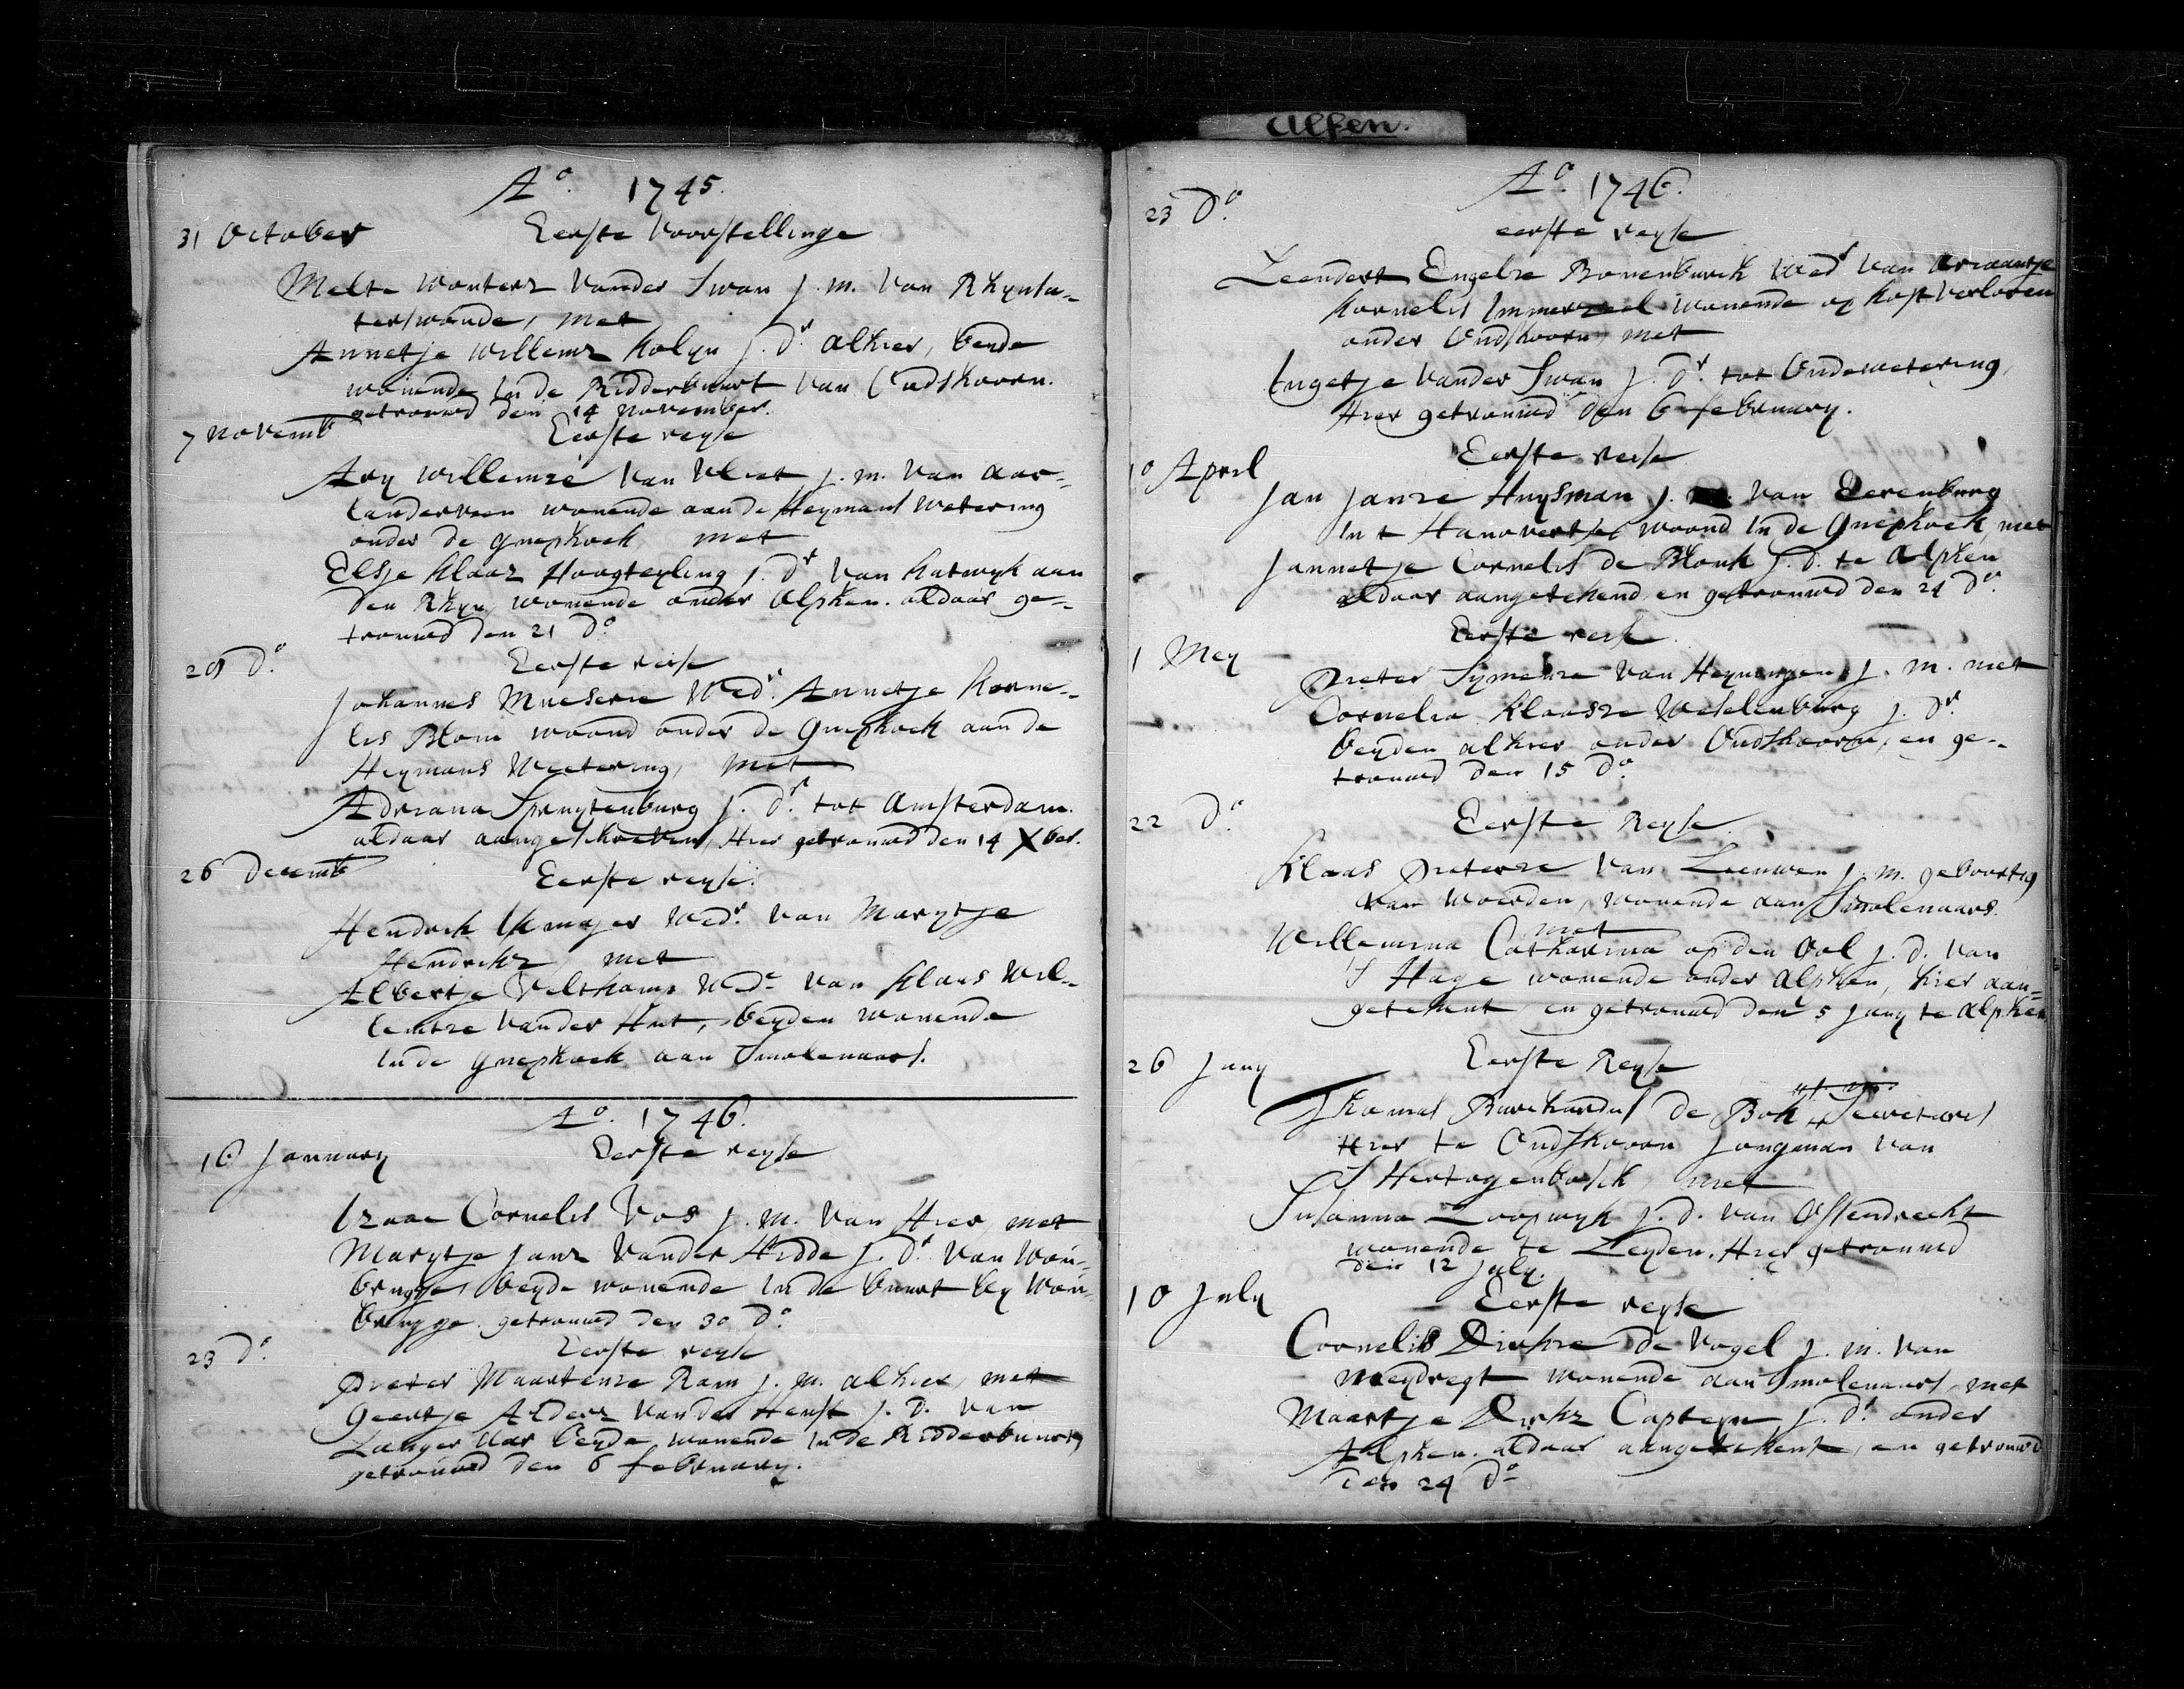 Alfen.
Ao. 1745.
31 October Eerste Voorstellinge
Melte Wouterz vander Swan j. m. van Rhynsa-
terswoude, met
Annetje Willemz Kolyn j. dr. alhier, beide
wonende in de Ridderbuurt van Oudshoorn.
getrouwd den 14 November.
7 Novemb Eerste reyse
Ary Willemze van Vliet j. m. van Aar-
landerveen wonende aan de Heymans Wetering
onder de Gnephoek met
Elsje Klaaz Hoogteyling j. dr. van Katwyk aan
den Rhyn, wonende onder Alphen. aldaar ge-
trouwd den 21 do.
do. Eerste reise
Johannes Wedr. Annetje Korne-
lis Blom woond onder de Gnephoek aan de
Heymans Weetering, met
Adriana Spruytenburg j. dr. tot Amsterdam.
aldaar aangeschreven, Hier getrouwd den 14 Xber.
26 Decemb Eerste reyse.
Hendrik Wedr. van Marytje
Hendrikz, met
Albertje Veltkamp Wede van Klaas Wil-
lemze vander Hut, beyden wonende
in de Gnephoek aan Smolenaars.
Ao. 1746.
16 January Eerste reyse
Izaac Cornelis Vos j. m. van Hier, met
Marytje Janz vander Hidde j. dr. van Wou-
brugge, beyde wonende in de buurt by Wou-
brugge. getrouwd den 30 do.
23 do. Eerste reyse
Pieter Maartenze Ram j. m. alhier, met
Geertje Arderz vander Henst j. d. van
Langer Aar beyde wonende in de Ridderbuurt,
getrouwd den 6 february.
Ao. 1746.
23 do.
eerste reyse
Leendert Engelze Bonenburch Wedr van Ariaantje
Kornelis Immerzeel wonende op Kostverloren
onder Oudshoorn, met
Ingetje vander Swan j. dr. tot Oudewetering,
Hier getrouwd den 6 february.
10 April Eerste reise
Jan Janze Huysman j. m. van Eerenburg
in t Hanoverse, woond in de Gnephoek, met
Jannetje Cornelis de Blonk j. d. te Alphen
aldaar aangetekend en getrouwd den 24 do.
Eerste reise
1 Mey
Pieter Symenze van Heyningen j. m. met
Cornelia Klaasze Weselenburg j. dr.
beyden alhier onder Oudshoorn, en ge-
trouwd den 15 do.
22 do. Eerste Reyse
Klaas Pieterze van Leeuwen j. m. geboortig
van Woerden, wonende aan Smolenaars.
met
Willemina Catharina op den Ool j. d. van
's Hage wonende onder Alphen, hier aan-
getekent en getrouwd den 5 Juny te Alphen
26 Juny Eerste Reyse
Thomas Burchardus de Bok Secretaris
Hier te Oudshoorn Jongman van
S Hertogenbosch, met
Susanna Loopwyk j. d. van Ossendrecht
wonende te Leyden. Hier getrouwd
den 12 July.
10 July Eerste reyse
Cornelis Dirkze de Vogel j. m. van
Meydregt wonende aan Smolenaars, met
Maartje Dirkz Capteyn j. dr. onder
Alphen. aldaar aangetekent, en getrouwd
den 24 do